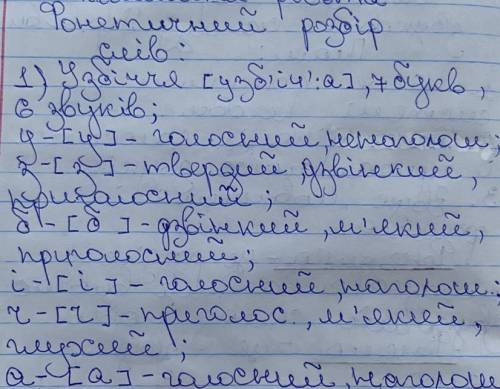 Фонетичний розбір
слів:
1) Узбіччя [узб'іч':а], 7 букв,
6 звуків;
у-[у]-голосний, ненаголош;
з-[з]-твердий, дзвінкий,
приголосний;
б-[б]-дзвінкий, м'який,
приголосний;
і-[і]-голосний, наголош;
ч-[ч]-приголос., м'який,
глухий;
а-[а]-голосний, наголош